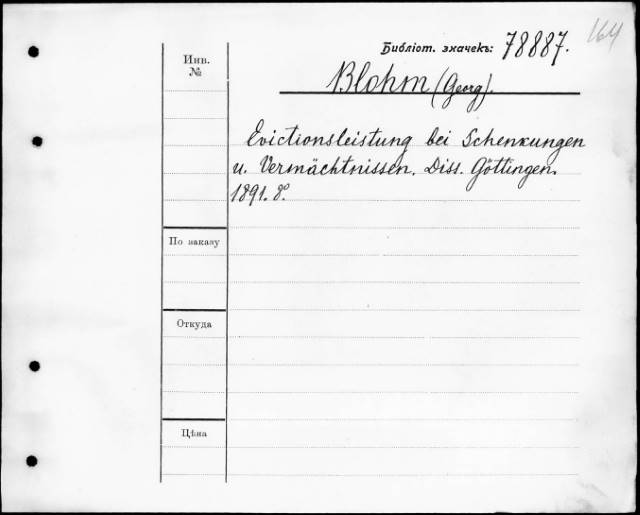 164
Библіот. значекъ: 78887.
Инв.
№
Blohm (Georg).
Evictionsleistung bei Schenkungen
u. Vermächtnissen. Diss. Göttingen.
1891. 8°.
По заказу
Откуда
Цѣна